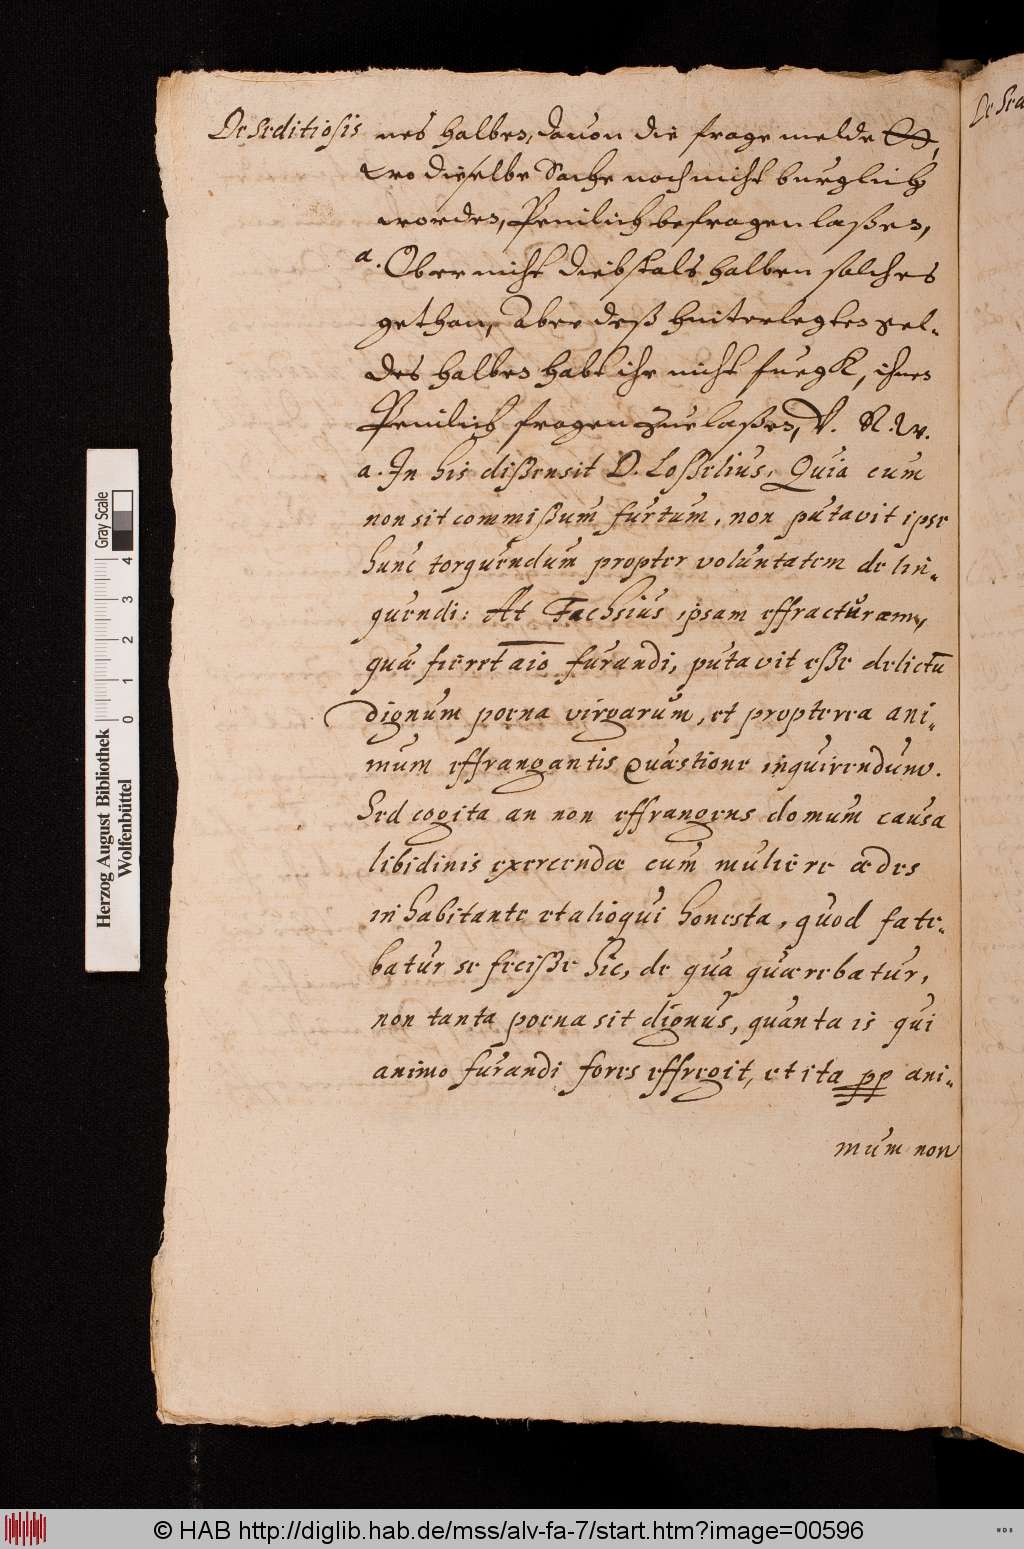 De seditiosis
nes halben, dauon die frage meldett,
wo dieselbe Sache noch nicht burglich
worden, Peinlich befragen laßen,
a. Ob er nicht diebstals halben solches
gethan, Aber deß hinterlegten gel-
des halben habt ihr nicht fueg, ihnen
Peinlich fragen zue laßen, V. R. W.
a. In his dißensit D. Loßelius, Quia cum
non sit commißum furtum, non putavit ipse
hunc torquendum propter voluntatem delin-
quendi: At Fachsius ipsam effracturam,
quæ fieret aīo furandi, putavit eße delictū
dignum poena virgarum, et propterea ani-
mum effrangantis quæstione inquirendum.
Sed cogita an non effrangens domum causa
libidinis exercendæ cum muliere ædes
inhabitante et alioqui honesta, quod fate-
batur se feciße hic, de qua quærebatur,
non tanta poena sit dignus, quanta is qui
animo furandi fores effregit, et ita pp ani-
mum non
De Se
Herzog August Bibliothek
Wolfenbüttel
0 1 2 3 4
Gray Scale
© HAB http://diglib.hab.de/mss/alv-fa-7/start.htm?image=00596